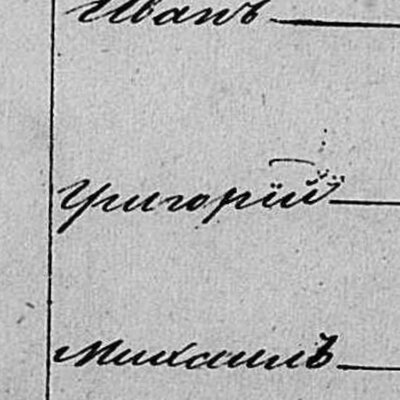 Иванъ
Григорій
Михаилъ